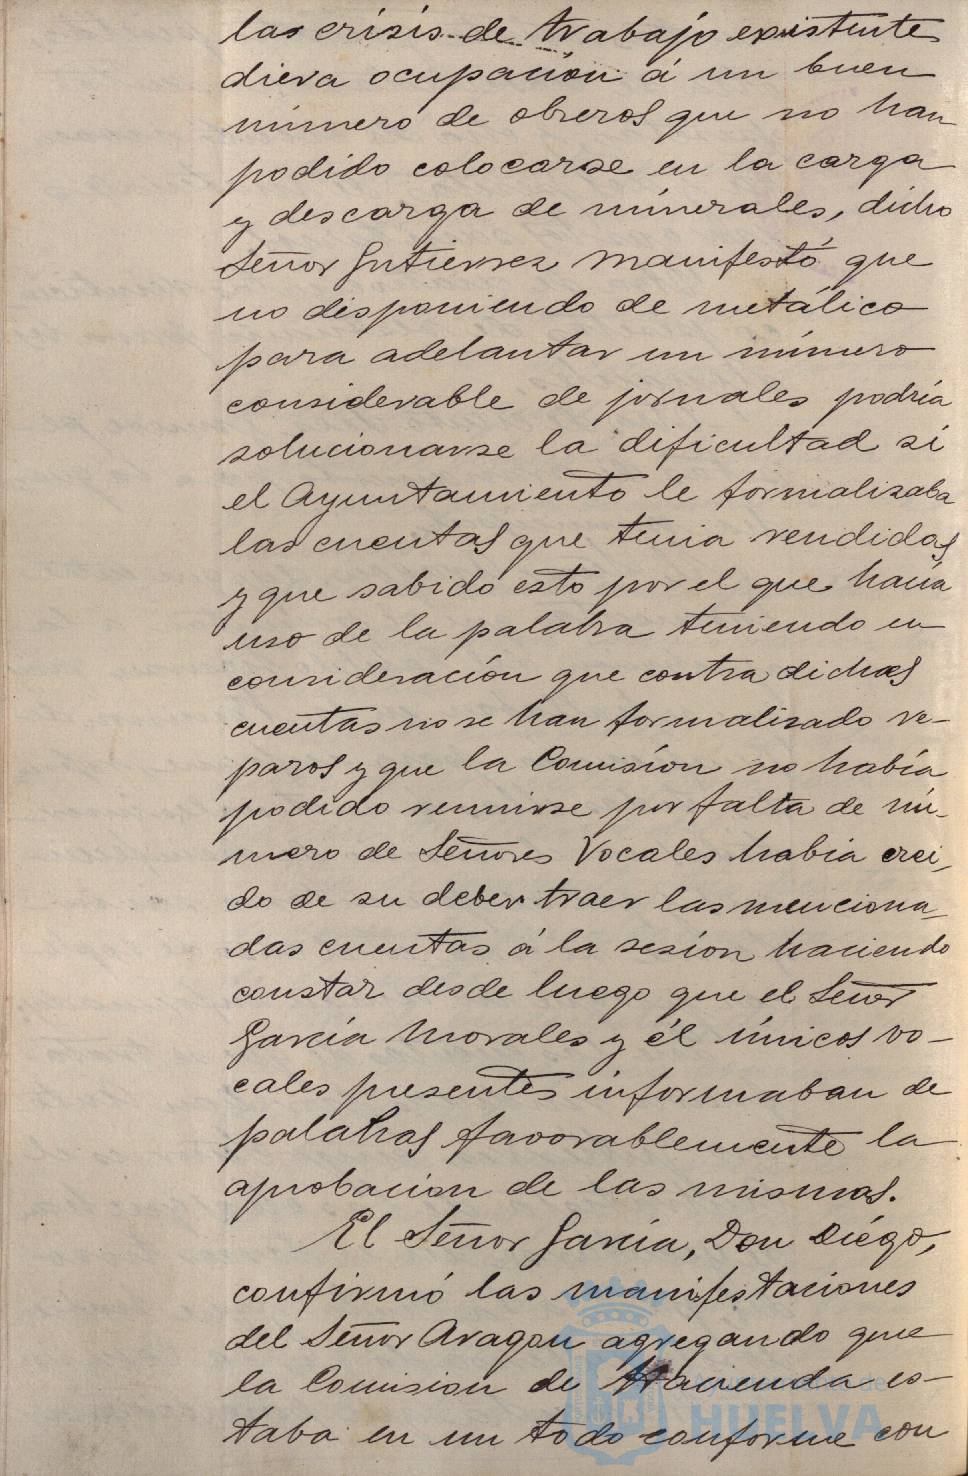 las crisis de trabajo existente
diera ocupación á un buen
número de obreros que no han
podido colocarse en la carga
y descarga de minerales, dicho
Señor Gutierrez manifestó que
no disponiendo de metálico
para adelantar un número
considerable de jornales podría
solucionarse la dificultad si
el Ayuntamiento le formalizaba
las cuentas que tenia rendidas
y que sabido esto por el que hacía
uso de la palabra teniendo en
consideración que contra dichas
cuentas no se han formalizado re-
paros y que la Comisión no había
podido reunirse por falta de nú-
mero de Señores Vocales habia crei-
do de su deber traer las menciona-
das cuentas á la sesión haciendo
constar desde luego que el Señor
García Morales y él únicos vo-
cales presentes informaban de
palabras favorablemente la
aprobacion de las mismas.
El Señor García, Don Diégo,
confirmó las manifestaciones
del Señor Aragon agregando que
la Comision de Hacienda es-
taba en un todo conforme con
HUELVA